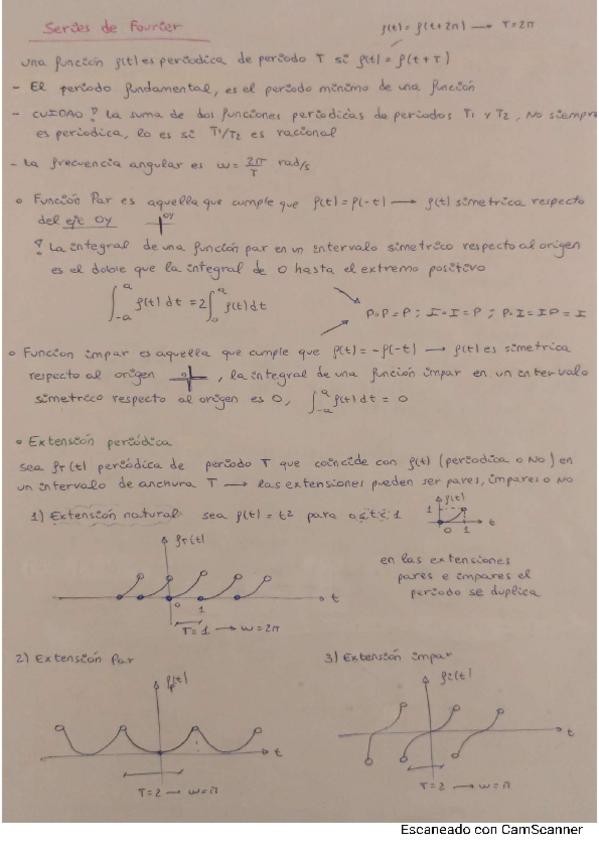 Series de Fourier
f(t) = f(t+2π) → T=2π
una función f(t) es periodica de periodo T si f(t) = f(t+T)
- El periodo fundamental, es el periodo minimo de una función
- CUIDAO ! la suma de dos funciones periodicas de periodos T1 y T2, NO siempre
es periodica, lo es si T1/T2 es racional
- la frecuencia angular es ω = 2π/T rad/s
• Función Par es aquella que cumple que f(t) = f(-t) → f(t) simetrica respecto
del eje OY
OY
! La integral de una función par en un intervalo simetrico respecto al origen
es el doble que la integral de 0 hasta el extremo positivo
∫_{-a}^{a} f(t) dt = 2∫_{0}^{a} f(t) dt
P·P = P ; I·I = P ; P·I = I·P = I
• Funcion impar es aquella que cumple que f(t) = -f(-t) → f(t) es simetrica
respecto al origen , la integral de una función impar en un intervalo
simetrico respecto al origen es 0, ∫_{-a}^{a} f(t) dt = 0
• Extensión periódica
sea fT(t) periódica de periodo T que coincide con f(t) (periodica o NO) en
un intervalo de anchura T → las extensiones pueden ser pares, impares o NO
1) Extensión natural sea f(t) = t² para 0≤t<1
f(t)
0 1 t
fT(t)
0 1 t
T=1 → ω=2π
en las extensiones
pares e impares el
periodo se duplica
2) Extensión Par
fp(t)
t
T=2 → ω=π
3) Extensión impar
fi(t)
t
T=2 → ω=π
Escaneado con CamScanner